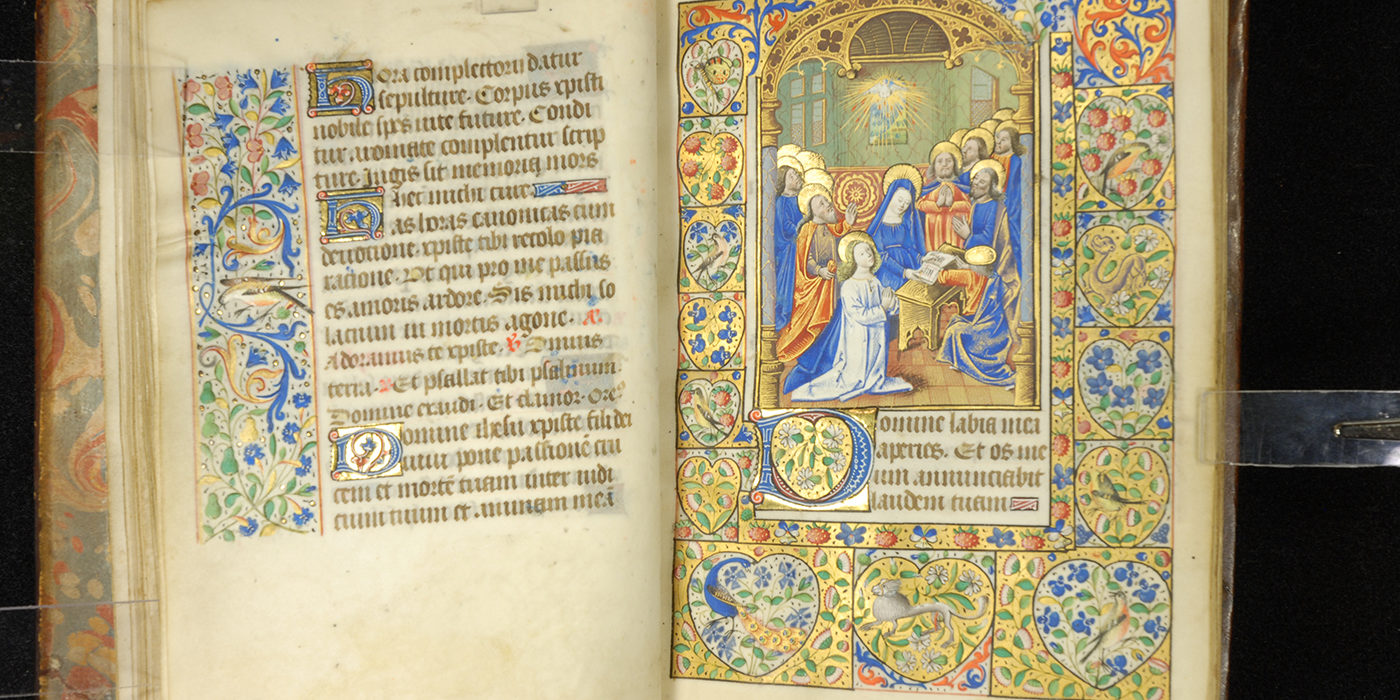 Hora completorii datur
sepulture. Corpus xpisti
nobile spes uite future. Condi
tur aromate complentur scrip
ture. Iugis sit memoria mors
hec michi cure
Has horas canonicas cum
deuocione. xpiste tibi recolo pia
racione. Vt qui pro me passus
es amoris ardore. Sis michi so
lacium in mortis agone.
Adoramus te xpiste. Domine
terra. Et psallat tibi psalmum
Domine exaudi. Et clamor. Oro
Domine ihesu xpiste fili dei
uiui pone passionē
cem et mortē tuam inter iudi
cium tuum et animam meā
Domine labia mea
aperies. Et os me
um annunciabit
laudem tuam